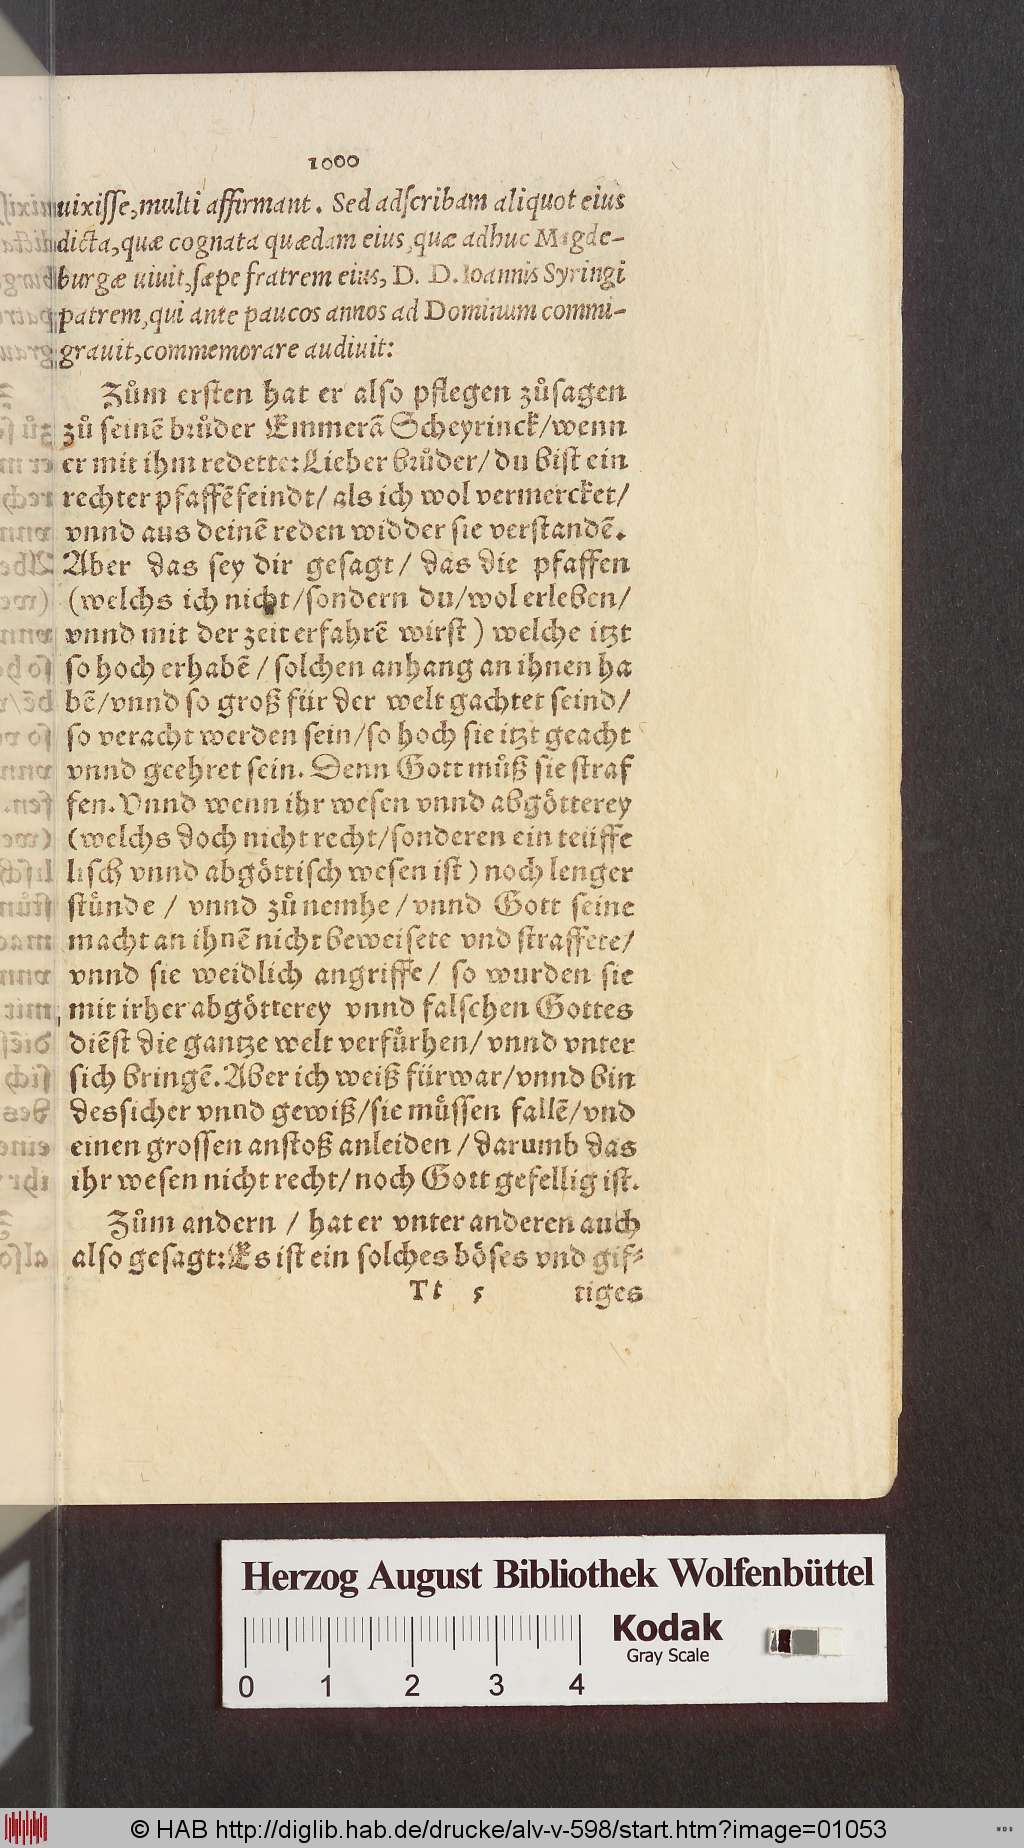 1000
uixiſſe, multi affirmant. Sed adſcribam aliquot eius
dicta, quæ cognata quædam eius, quæ adhuc Magde-
burgæ uiuit, ſæpe fratrem eius, D. D. Ioannis Syringi
patrem, qui ante paucos annos ad Dominum commi-
grauit, commemorare audiuit:
Zům erſten hat er alſo pflegen zůſagen
zů ſeinē brůder Emmerā Scheyrinck/wenn
er mit ihm redette: Lieber brůder/ du biſt ein
rechter pfaffēfeindt/ als ich wol vermercket/
vnnd aus deinē reden widder ſie verſtandē.
Aber das ſey dir geſagt/ das die pfaffen
(welchs ich nicht/ſondern du/wol erleben/
vnnd mit der zeit erfahrē wirſt) welche itzt
ſo hoch erhabē/ſolchen anhang an ihnen ha
bē/vnnd ſo groß für der welt gachtet ſeind/
ſo veracht werden ſein/ſo hoch ſie itzt geacht
vnnd geehret ſein. Denn Gott můß ſie ſtraf
fen. Vnnd wenn ihr weſen vnnd abgötterey
(welchs doch nicht recht/ſonderen ein teüffe
liſch vnnd abgöttiſch weſen iſt) noch lenger
ſtünde/ vnnd zů nemhe/vnnd Gott ſeine
macht an ihnē nicht beweiſete vnd ſtraffete/
vnnd ſie weidlich angriffe/ ſo wurden ſie
mit irher abgötterey vnnd falſchen Gottes
diēſt die gantze welt verfürhen/ vnnd vnter
ſich bringē. Aber ich weiß fürwar/vnnd bin
des ſicher vnnd gewiß/ſie müſſen fallē/vnd
einen groſſen anſtoß anleiden/darumb das
ihr weſen nicht recht/noch Gott gefellig iſt.
Zům andern/ hat er vnter anderen auch
alſo geſagt: Es iſt ein ſolches böſes vnd gif-
Tt 5 tiges
Herzog August Bibliothek Wolfenbüttel
Kodak
Gray Scale
0 1 2 3 4
© HAB http://diglib.hab.de/drucke/alv-v-598/start.htm?image=01053